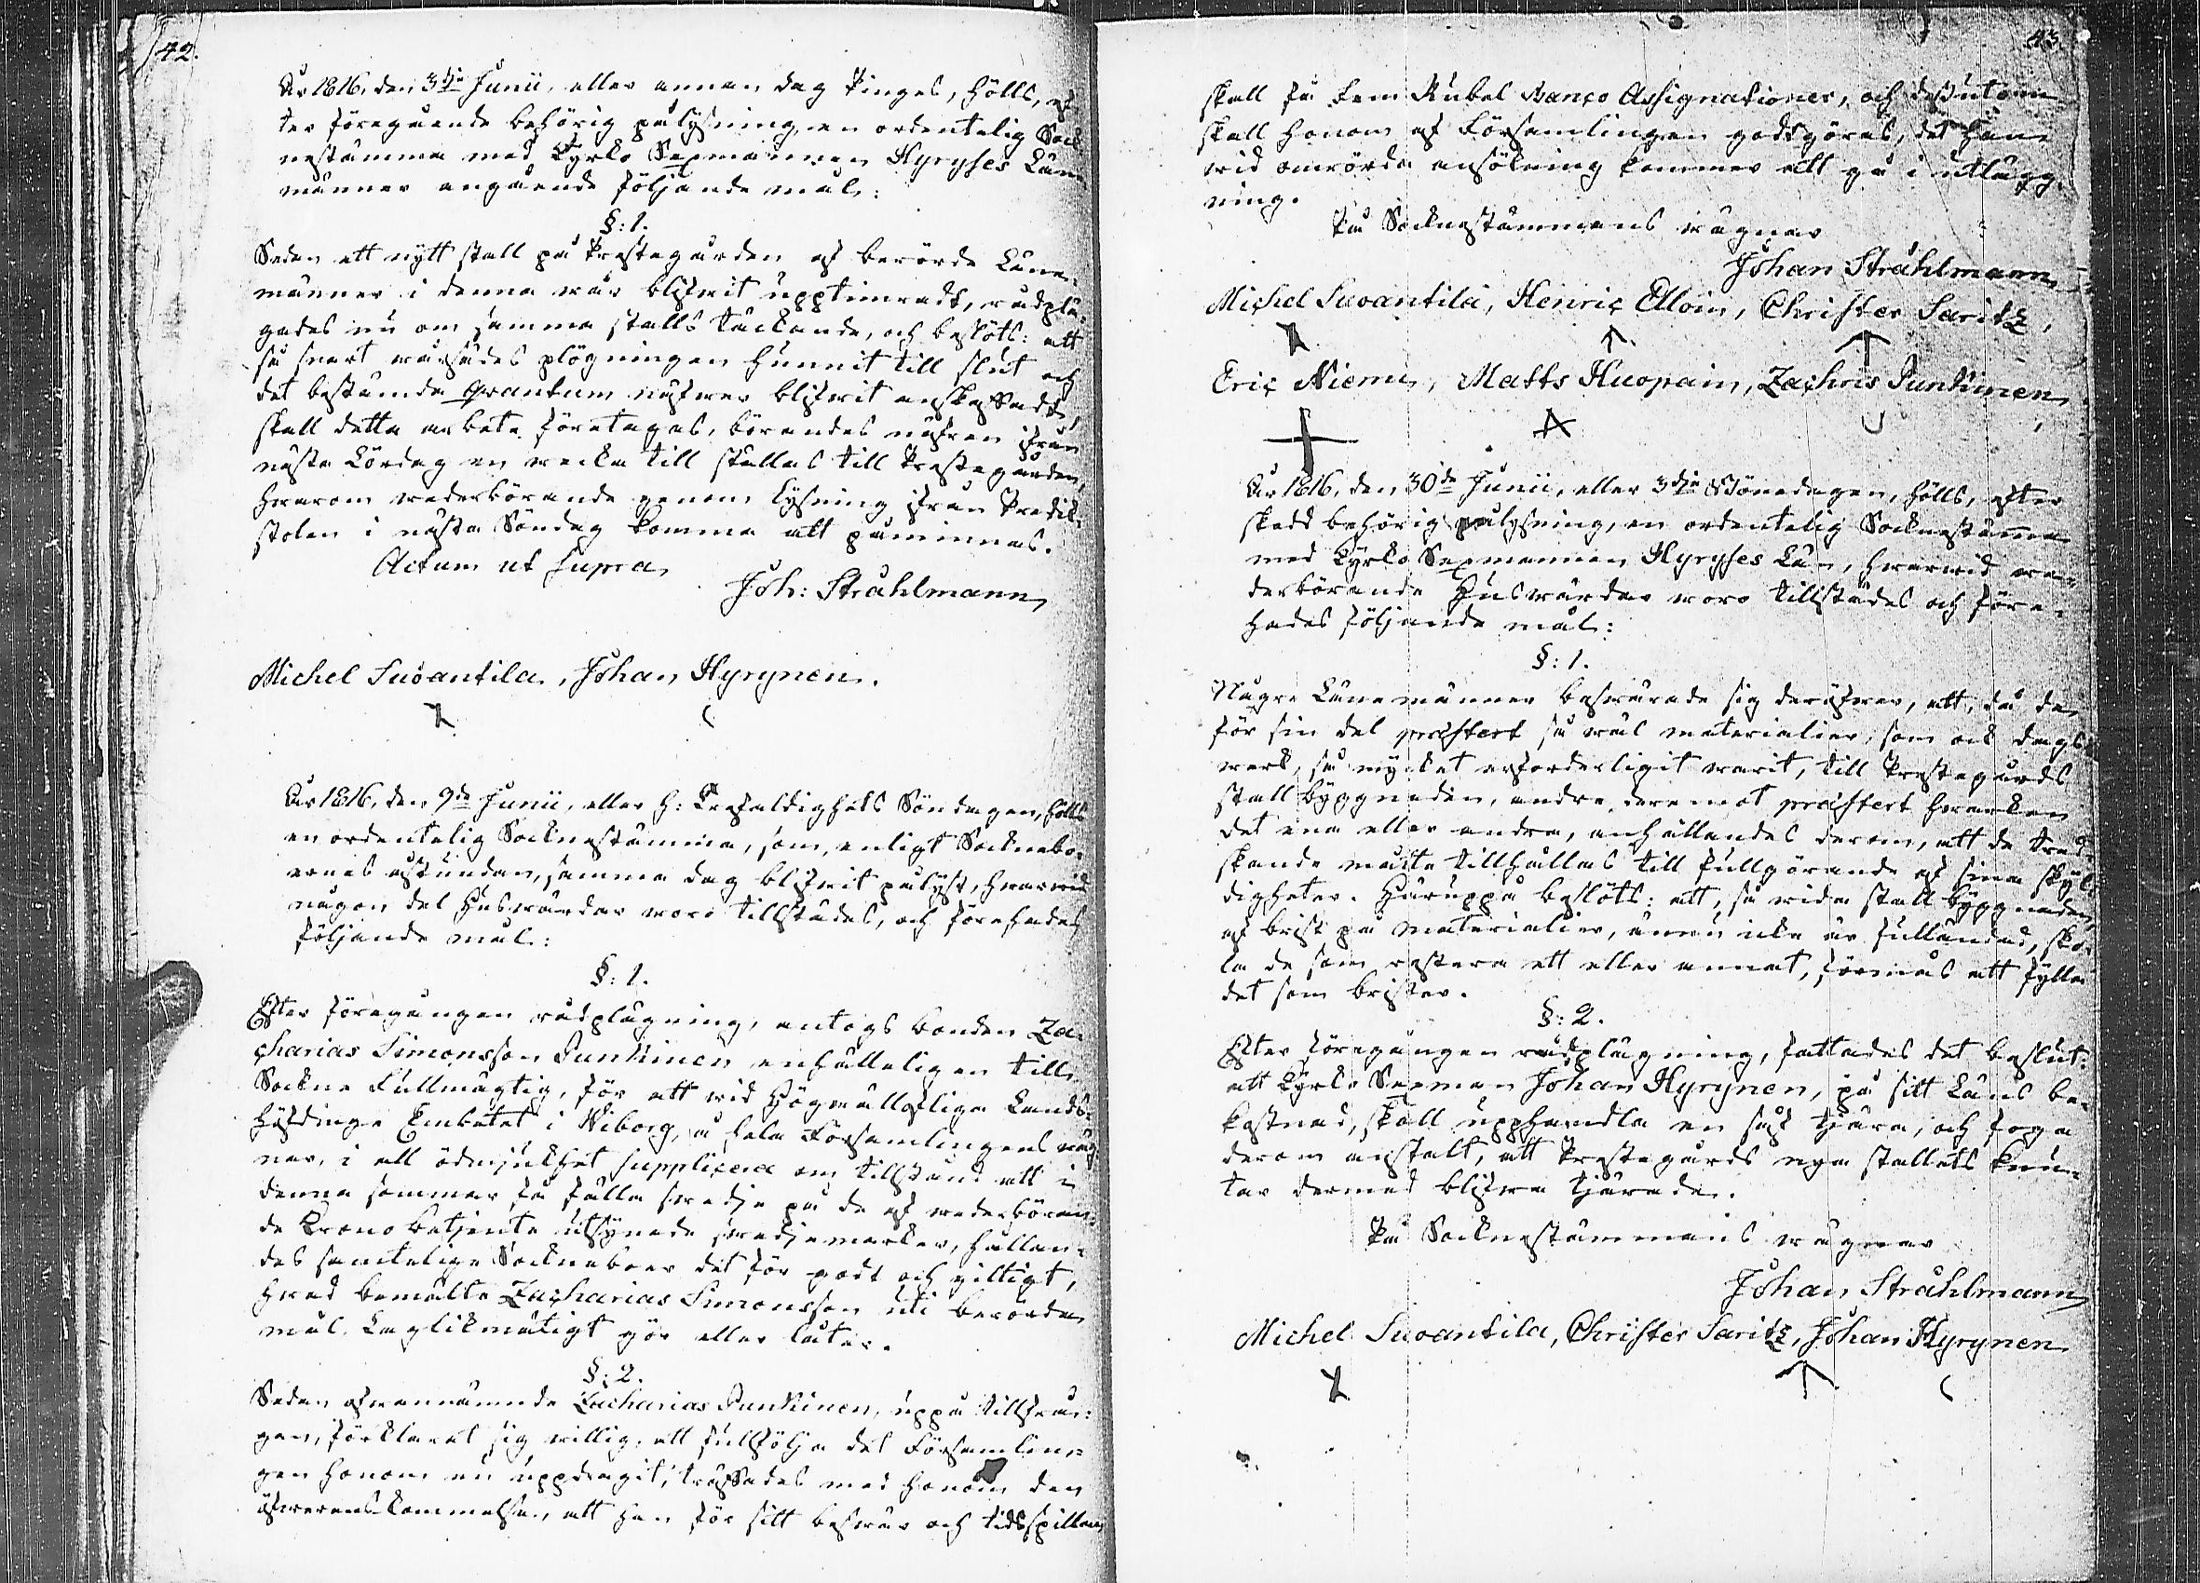 42.
År 1816, den 3dje Junii, eller annan dag Pingst, hölls, ef-
ter föregående behörig pålysning, en ordentelig Sock-
nestämma med Kyrko Sexmannen Hyryses Läne-
männer angående följande mål:
§: 1.
Sedan ett nytt stall på Prestegården af berörde Läne-
männer i denna vår blifwit upptimradt, rådplä-
gades nu om samma stalls täckande, och beslöts: att
så snart vårsädes plögningen hunnit till slut och
det bestämda Quantum näfwer blifwit anskaffadt,
skall detta arbete företagas, börandes näfren ifrån
nästa Lördag en wecka till ställas till Prestegården,
hwarom wederbörande genom lysning ifrån Predik-
stolen i nästa Söndag komma att påminnas.
Actum ut supra
Joh: Stråhlmann
Michel Suoantila, Johan Hyrynen.
År 1816, den 9de Junii, eller H: Trefaldighets Söndagen, hölls
en ordentelig Socknestämma, som, enligt Sockneboe-
ernes åstundan, samma dag blifwit pålyst, hwarwid
någon del Huswärdar woro tillstädes, och förehades
följande mål:
§: 1.
Efter föregången rådplägning, antogs bonden Za-
charias Simonsson Punkinen enhälleligen till
Sockne Fullmägtig, för att wid Högwälloflige Lands-
höfdinge Embetet i Wiborg, å hela Församlingens wäg-
nar, i all ödmjukhet supplicera om tillstånd att i
denna sommar få fälla swedje på de af wederböran-
de Krono betjente utsynade swedjemarker, hållan-
des samtelige Sockneboer det för godt och giltigt,
hwad bemälte Zacharias Simonsson uti berörde
mål Laglikmätigt gör eller låter.
§: 2.
Sedan ofwannämnde Zacharias Punkinen, uppå tillfrå-
gan, förklarat sig willig, att fullfölja det Församlin-
gen honom nu uppdragit, träffades med honom den
öfwerenskommelse, att han för sitt beswär och tidsspillan
43.
skall få Fem Rubel Banco Assignationer, och dessutom
skall honom af Församlingen godtgöras, det han
wid omrörda ansökning kommer att gå i utlägg-
ning.
På Socknestämmans wägnar
Johan Stråhlmann
Michel Suoantila, Henric Elloin, Christer Saritz,
Eric Niemi, Matts Huopain, Zachris Punkinen
År 1816, den 30de Junii, eller 3dje Bönedagen, hölls, efter
skedd behörig pålysning, en ordentelig Socknestämma
med Kyrko Sexmannen Hyryses Län, hwarwid we-
derbörande Huswärdar woro tillstädes och före-
hades följande mål:
§: 1.
Någre Länemänner beswärade sig deröfwer, att, då de
för sin del præstert så wäl materialier, som ock dags-
werk, så mycket erforderligit warit, till Prestegårds
stall byggnaden, andre deremot præstert hwarken
det ena eller andra, anhållandes derom, att de tred-
skande måtte tillhållas till fullgörande af sina skyl-
digheter. Häruppå beslöts: att, så wida stall byggnaden,
af brist på materialier, ännu icke är fulländad, sko-
la de som restera ett eller annat, förmås att fylla
det som brister.
§: 2.
Efter föregången rådplägning, fattades det beslut:
att Kyrko Sexman Johan Hyrynen, på sitt Läns be-
kostnad, skall upphandla en fast tjära, och foga
derom anstalt, att Prestegårds nya stallets knu-
tar dermed blifwa tjärade.
På Socknestämmans wägnar
Johan Stråhlmann
Michel Suoantila, Christer Saritz, Johan Hyrynen